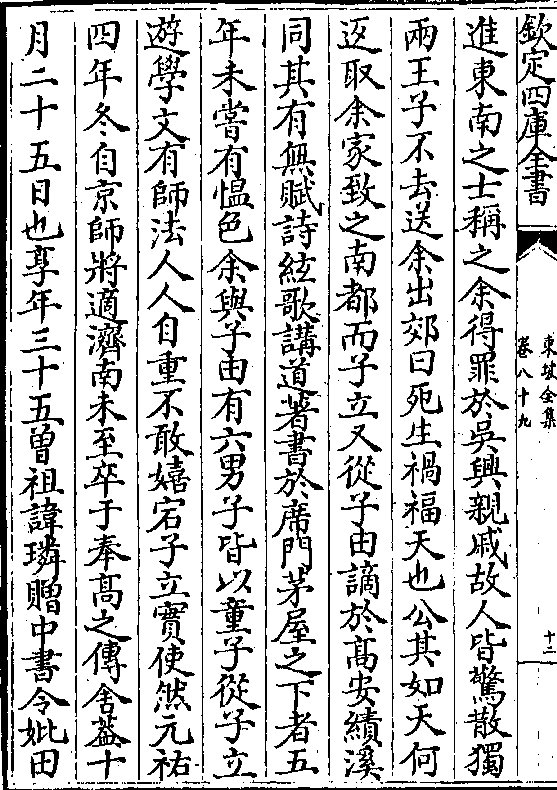 欽定四庫全書
東坡全集
卷八十九
十二
進東南之士稱之余得罪於吳興親戚故人皆驚散獨
兩王子不去送余出郊曰死生禍福天也公其如天何
返取余家致之南都而子立又從子由謫於高安績溪
同其有無賦詩絃歌講道著書於席門茅屋之下者五
年未嘗有愠色余與子由有六男子皆以童子從子立
遊學文有師法人人自重不敢嬉宕子立實使然元祐
四年冬自京師將適濟南未至卒于奉高之傳舍葢十
月二十五日也享年三十五曾祖諱璘贈中書令妣田